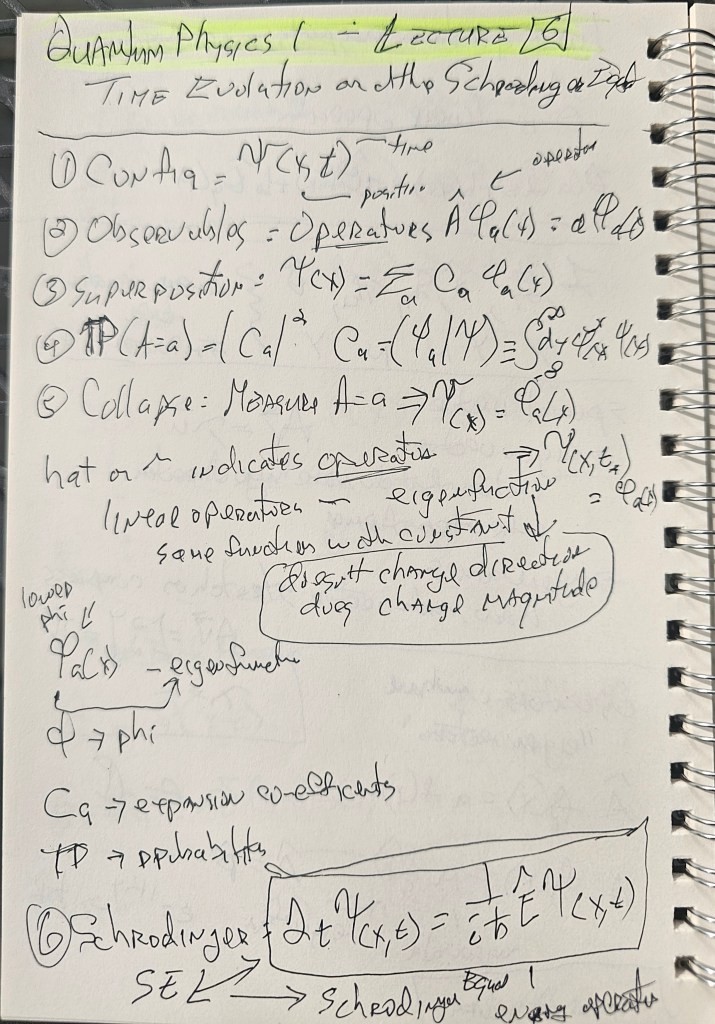 Quantum Physics 1 - Lecture [6]
Time Evolution and the Schrodinger Eq
① Config = Ψ(x,t) time
position operator
② Observables = Operators Â φa(x) = a φa(x)
③ Superposition: Ψ(x) = Σa Ca φa(x)
④ ℙ(A=a) = |Ca|² Ca = (φa|Ψ) = ∫-∞^∞ dx φ*(x) Ψ(x)
⑤ Collapse: Measure A=a ⇒ Ψ(x) = φa(x)
hat or ^ indicates operator ⇒ Ψ(x,t*)
linear operators - eigenfunction = φa(x)
same function with constant
doesn't change direction
does change magnitude
lower
phi
φa(x) - eigenfunctn
ϕ → phi
Ca → expansion co-efficents
ℙ → probabilites
⑥ Schrodinger = ∂t Ψ(x,t) = 1/iħ Ê Ψ(x,t)
SE → Schrodinger Equat energy operator